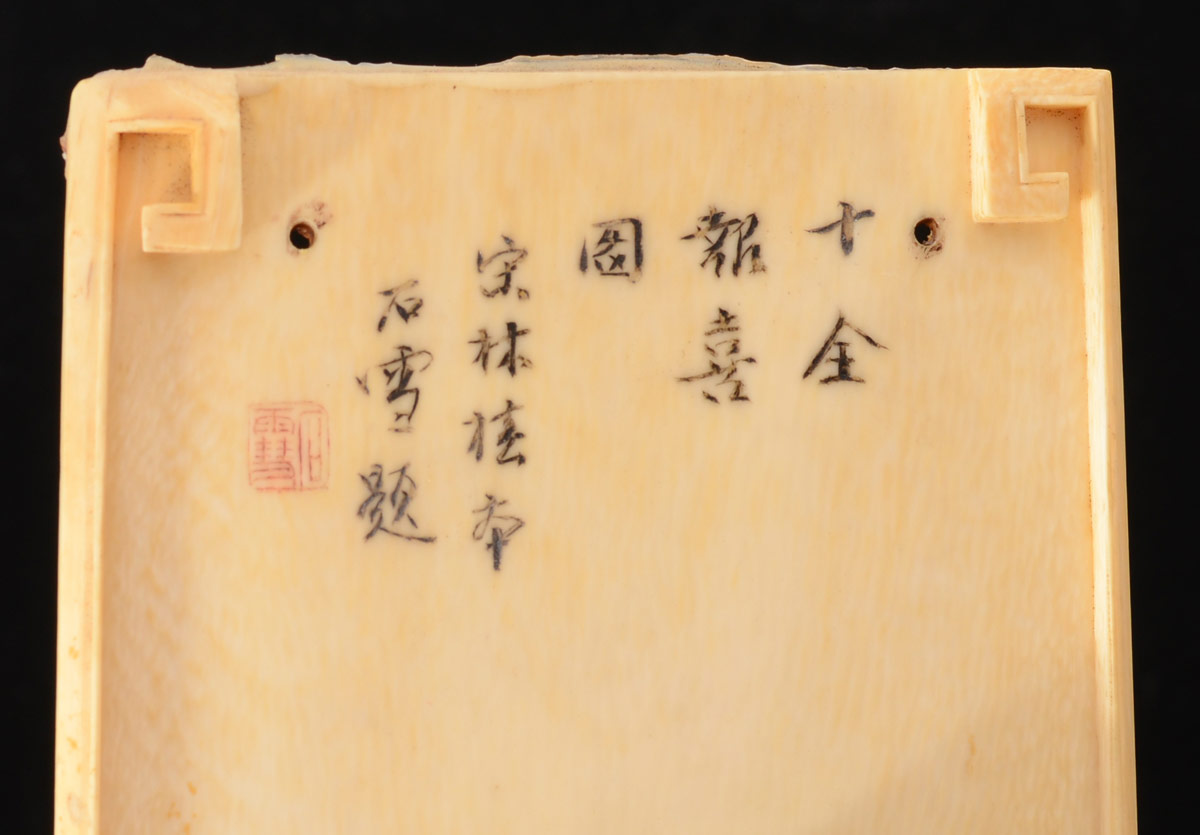 十全
報喜
圖
宋林椿本
石雪題
石雪